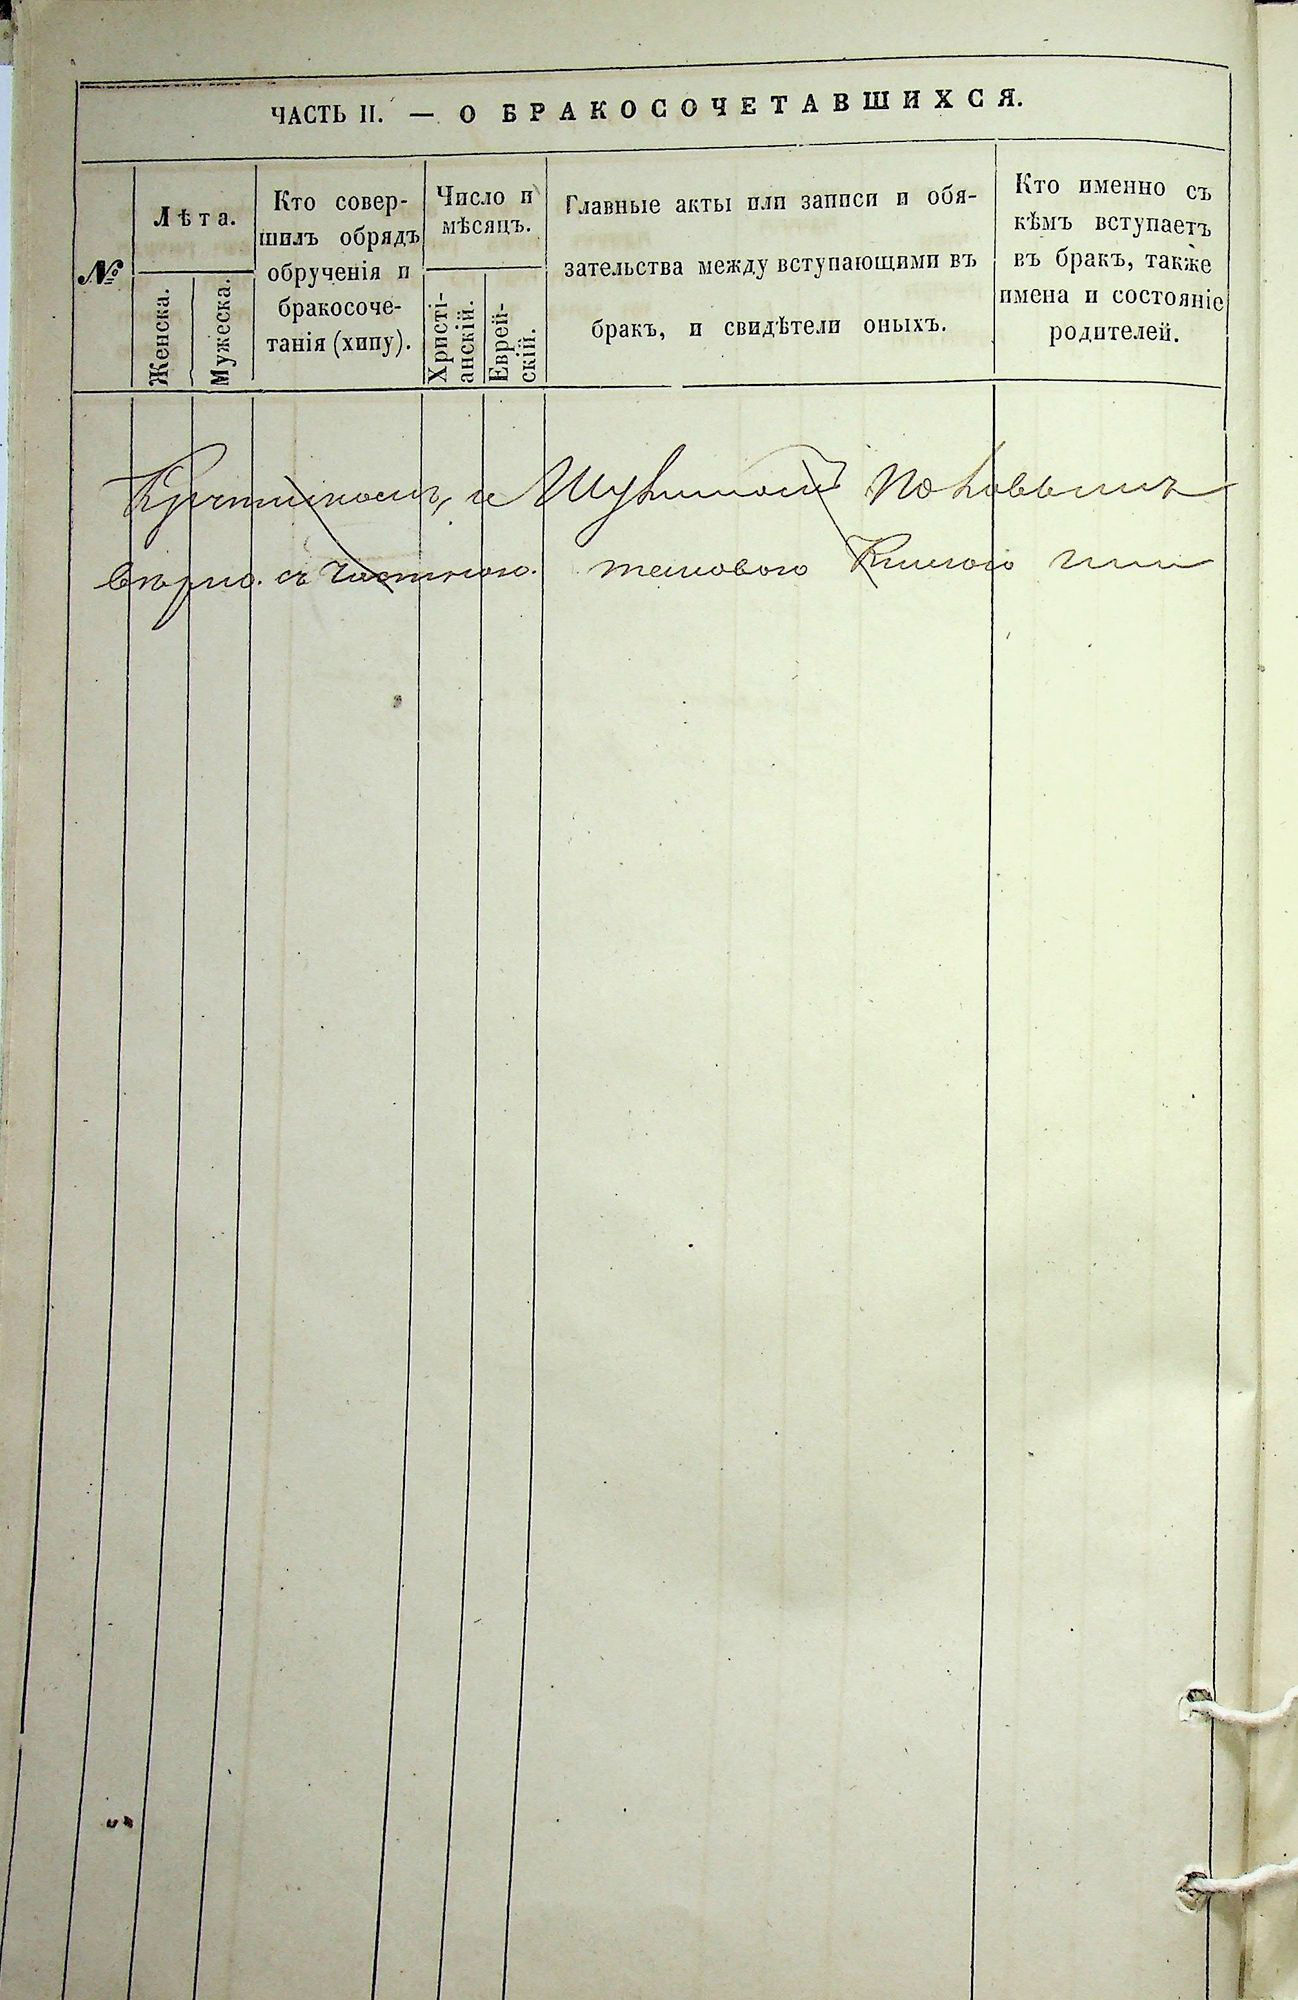 ЧАСТЬ II. — О БРАКОСОЧЕТАВШИХСЯ.
№
Лѣта.
Женска.
Мужеска.
Кто совер-
шилъ обрядъ
обрученія и
бракосоче-
танія (хипу).
Число и
мѣсяцъ.
Христі-
анскій.
Еврей-
скій.
Главные акты или записи и обя-
зательства между вступающими въ
бракъ, и свидѣтели оныхъ.
Кто именно съ
кѣмъ вступаетъ
въ бракъ, также
имена и состояніе
родителей.
и
вѣрно съ